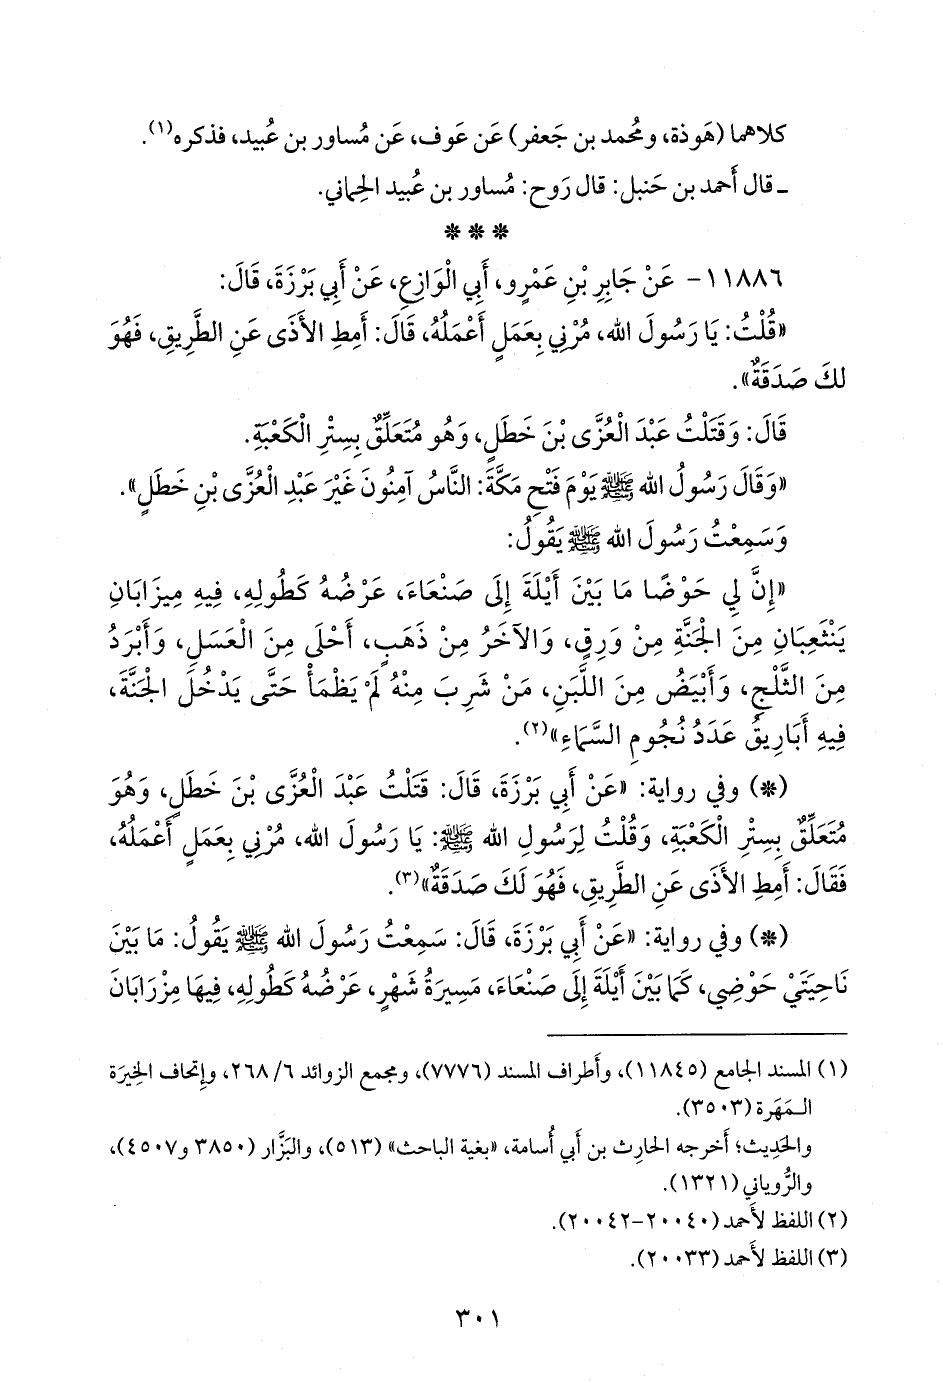 كلاهما (هَوذة، ومُحمد بن جَعفر) عَن عَوف، عَن مُساور بن عُبيد، فذكره(١).
ـ قال أَحمد بن حَنبل: قال رَوح: مُساور بن عُبيد الحِماني.
* * *
١١٨٨٦- عَنْ جَابِرِ بْنِ عَمْرٍو، أَبِي الْوَازِعِ، عَنْ أَبِي بَرْزَةَ، قَالَ:
«قُلْتُ: يَا رَسُولَ الله، مُرْنِي بِعَمَلٍ أَعْمَلُهُ، قَالَ: أَمِطِ الأَذَى عَنِ الطَّرِيقِ، فَهُوَ
لَكَ صَدَقَةٌ».
قَالَ: وَقَتَلْتُ عَبْدَ الْعُزَّى بْنَ خَطَلٍ، وَهُوَ مُتَعَلِّقٌ بِسِتْرِ الْكَعْبَةِ.
«وَقَالَ رَسُولُ الله ﷺ يَوْمَ فَتْحِ مَكَّةَ: النَّاسُ آمِنُونَ غَيْرَ عَبْدِ الْعُزَّى بْنِ خَطَلٍ».
وَسَمِعْتُ رَسُولَ الله ﷺ يَقُولُ:
«إِنَّ لِي حَوْضًا مَا بَيْنَ أَيْلَةَ إِلَى صَنْعَاءَ، عَرْضُهُ كَطُولِهِ، فِيهِ مِيزَابَانِ
يَنْثَعِبَانِ مِنَ الْجَنَّةِ مِنْ وَرِقٍ، وَالآخَرُ مِنْ ذَهَبٍ، أَحْلَى مِنَ الْعَسَلِ، وَأَبْرَدُ
مِنَ الثَّلْجِ، وَأَبْيَضُ مِنَ اللَّبَنِ، مَنْ شَرِبَ مِنْهُ لَمْ يَظْمَأْ حَتَّى يَدْخُلَ الْجَنَّةَ،
فِيهِ أَبَارِيقُ عَدَدُ نُجُومِ السَّمَاءِ»(٢).
(*) وفي رواية: «عَنْ أَبِي بَرْزَةَ، قَالَ: قَتَلْتُ عَبْدَ الْعُزَّى بْنَ خَطَلٍ، وَهُوَ
مُتَعَلِّقٌ بِسِتْرِ الْكَعْبَةِ، وَقُلْتُ لِرَسُولِ الله ﷺ: يَا رَسُولَ الله، مُرْنِي بِعَمَلٍ أَعْمَلُهُ،
فَقَالَ: أَمِطِ الأَذَى عَنِ الطَّرِيقِ، فَهُوَ لَكَ صَدَقَةٌ»(٣).
(*) وفي رواية: «عَنْ أَبِي بَرْزَةَ، قَالَ: سَمِعْتُ رَسُولَ الله ﷺ يَقُولُ: مَا بَيْنَ
نَاحِيَتَيْ حَوْضِي، كَمَا بَيْنَ أَيْلَةَ إِلَى صَنْعَاءَ، مَسِيرَةُ شَهْرٍ، عَرْضُهُ كَطُولِهِ، فِيهَا مِزْرَابَانِ
(١) المسند الجامع (١١٨٤٥)، وأَطراف المسند (٧٧٧٦)، ومجمع الزوائد ٦/ ٢٦٨، وإِتحاف الخِيرَة
المَهَرة (٣٥٠٣).
والحَديث؛ أَخرجه الحارِث بن أَبي أُسامة، «بغية الباحث» (٥١٣)، والبَزَّار (٣٨٥٠ و٤٥٠٧)،
والرُّوياني (١٣٢١).
(٢) اللفظ لأَحمد (٢٠٠٤٠-٢٠٠٤٢).
(٣) اللفظ لأَحمد (٢٠٠٣٣).
٣٠١